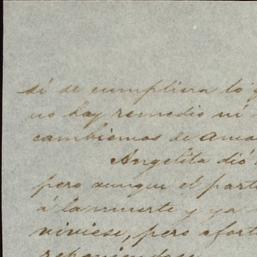 si se cumpliera lo q
no hay remedio ni
cambiemos de ama
Angelita dió
pero aunque el parto
á la muerte y ya
viviese, pero afort
reponiéndose